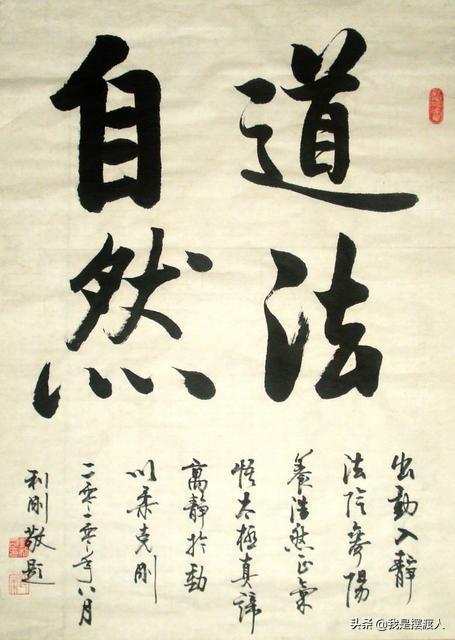 道法
自然
出動入靜
法陰陽
養浩然正氣
悟太極真諦
寓靜於動
以柔克剛
年八月
利剛敬題
头条 @我是擺渡人